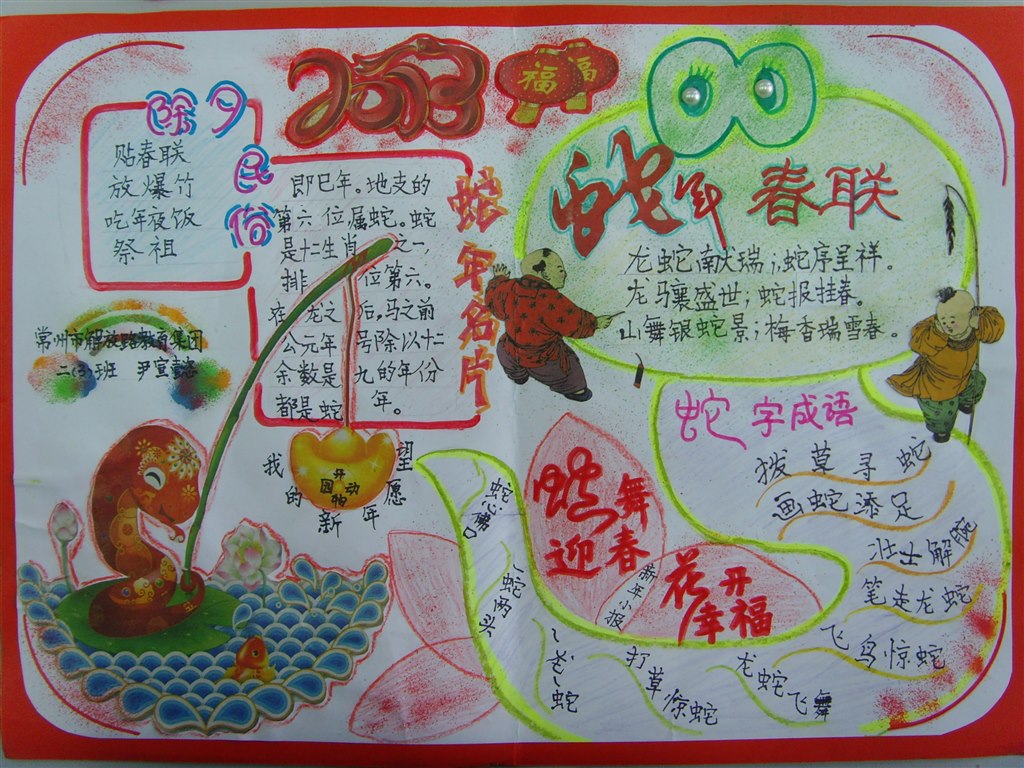 2013
福 福
除夕民俗
贴春联
放爆竹
吃年夜饭
祭祖
即巳年。地支的
第六位属蛇。蛇
是十二生肖之一，
排位第六。
在龙之后，马之前
公元年号除以十二
余数是九的年份
都是蛇年。
蛇年名片
常州市解放路教育集团
二(3)班 尹宣
我的新年愿望
开
圆动物
蛇年 春联
龙蛇献瑞；蛇序呈祥。
龙马襄盛世；蛇报挂春。
山舞银蛇景；梅香瑞雪春。
蛇字成语
拨草寻蛇
画蛇添足
壮士解腕
笔走龙蛇
飞鸟惊蛇
龙蛇飞舞
打草惊蛇
一龙一蛇
一蛇两头
蛇心佛口
蛇舞
迎春
新年小报
花开
幸福